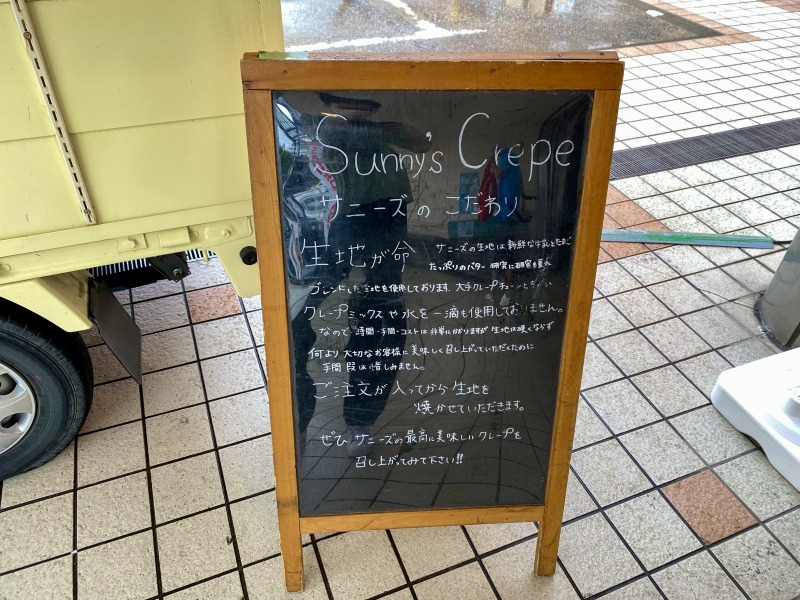 Sunny's Crepe
サニーズの こだわり
生地が命 サニーズの生地は新鮮な牛乳とたまご
たっぷりのバター 研究に研究を重ね
ブレンドした生地を使用しております。大手クレープチェーンとちがい
クレープミックスや水を一滴も使用しておりません。
なので 時間・手間・コストは非常にかかりますが 生地は硬くならず
何より大切なお客様に美味しく召し上がっていただくために
手間 は惜しみません。
ご注文が入ってから生地を
焼かせていただきます。
ぜひ サニーズの最高に美味しいクレープを
召し上がってみて下さい!!